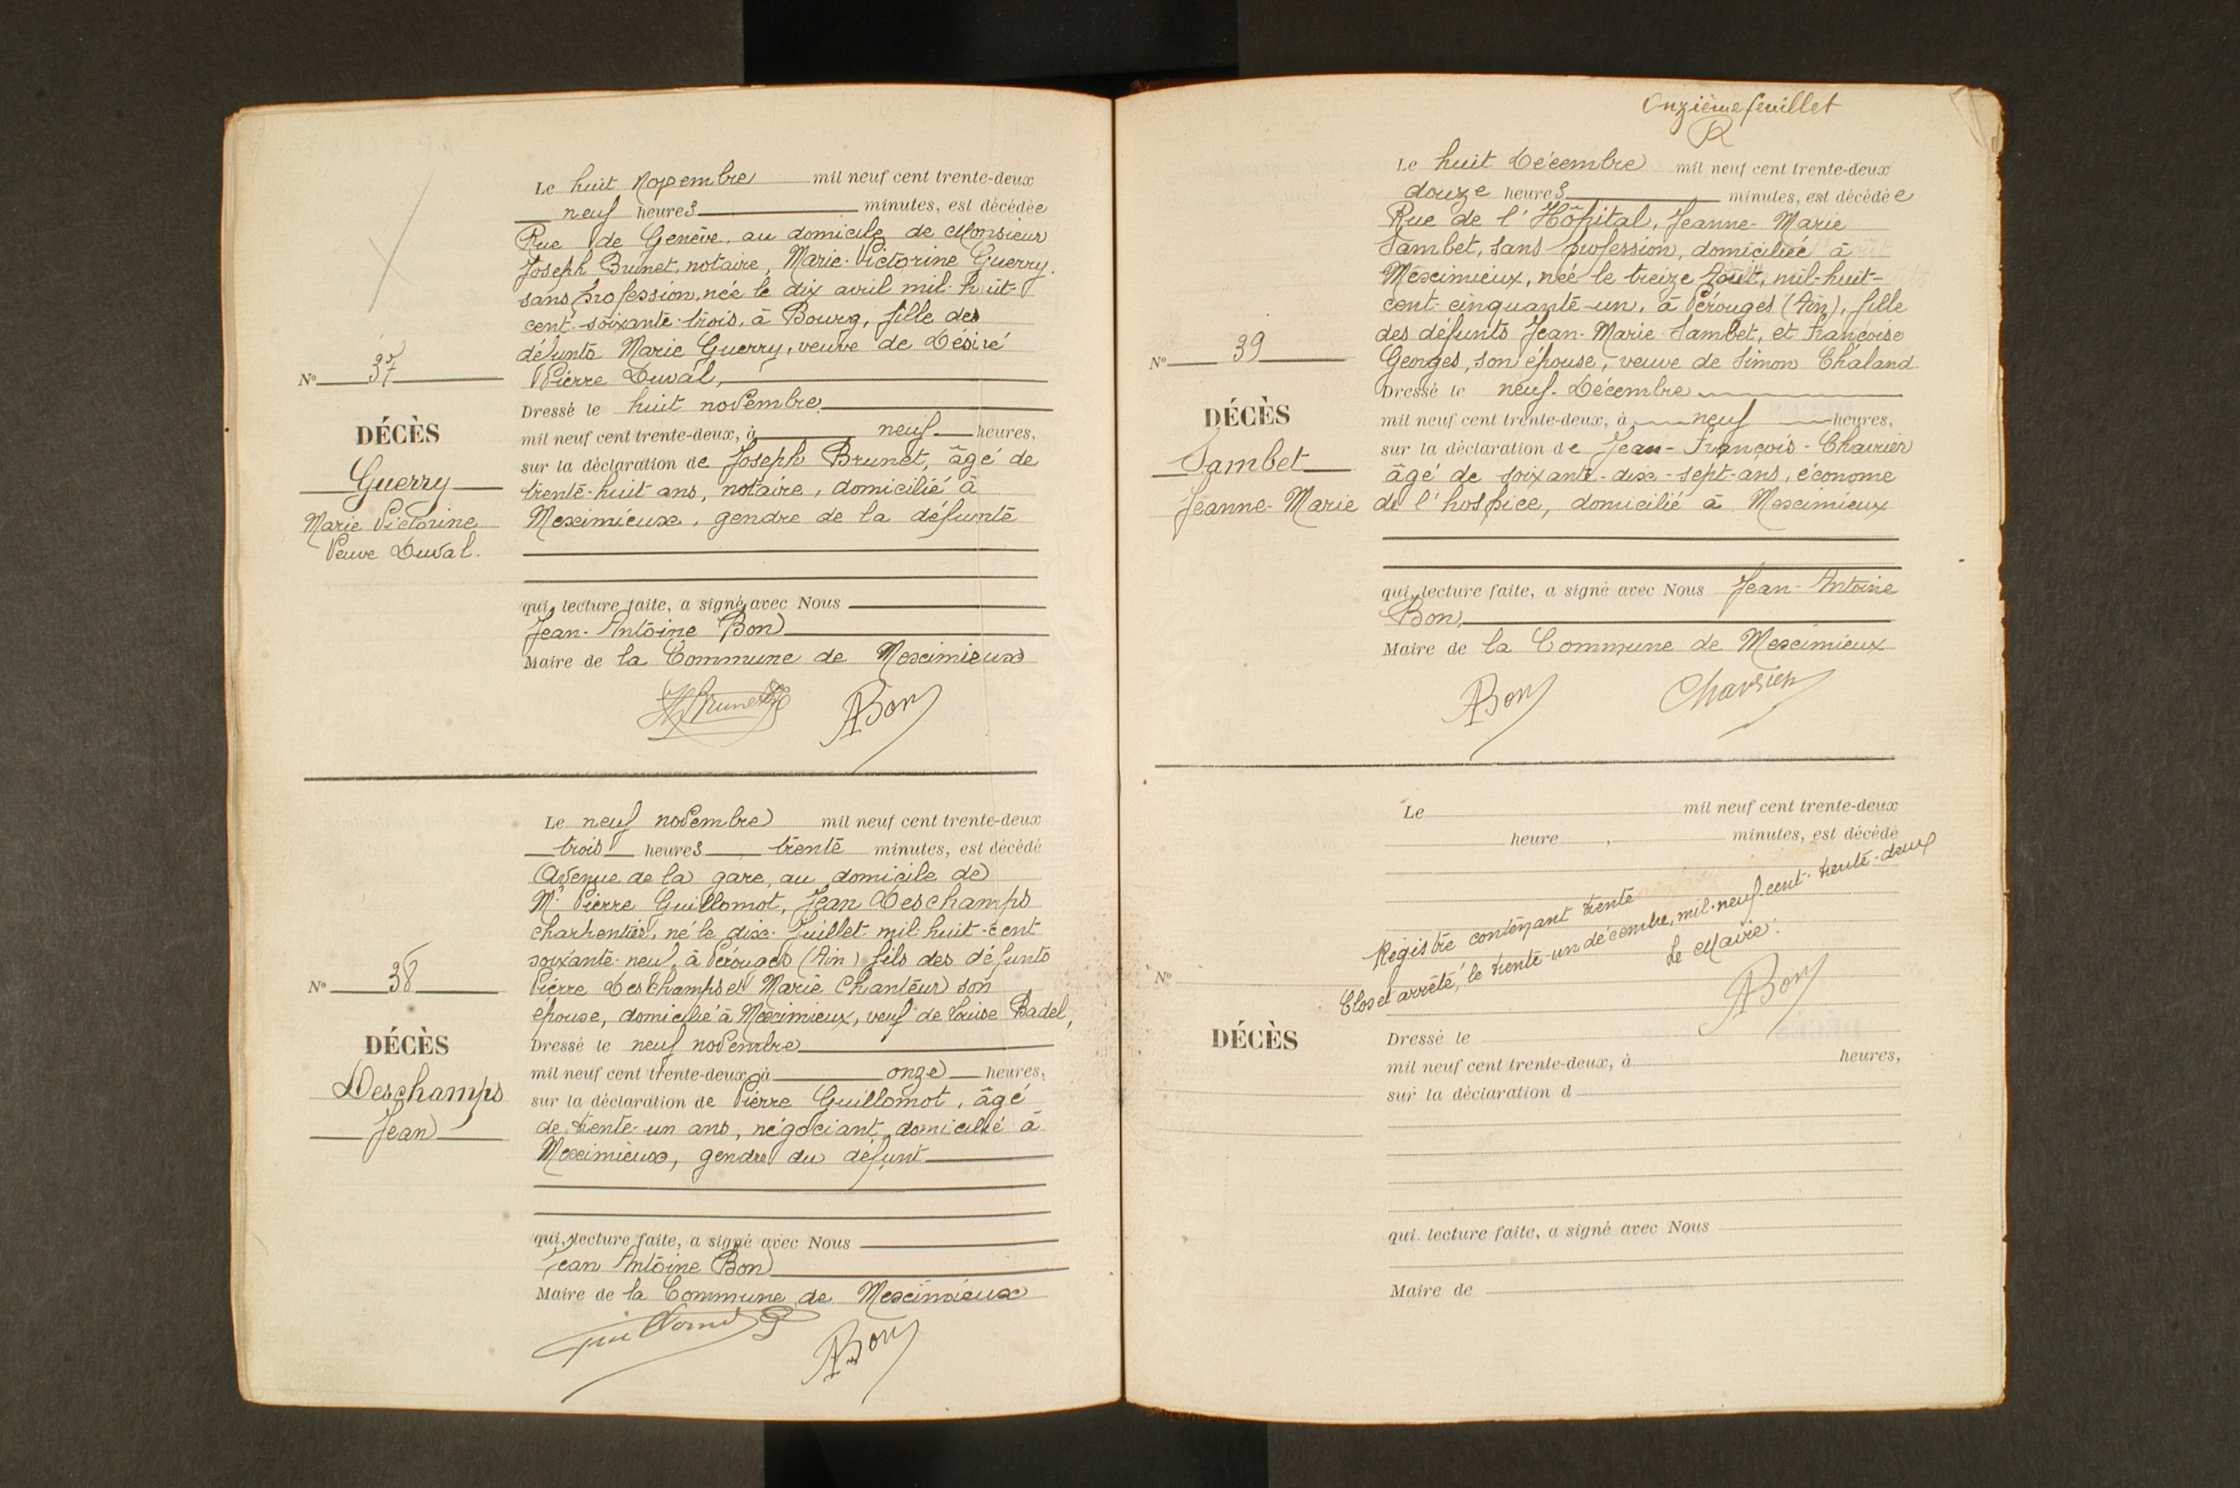 Le huit Novembre mil neuf cent trente-deux
neuf heures minutes, est décédée
Rue de Genève, au domicile de Monsieur
Joseph Brunet, notaire, Marie-Victorine Guerry.
sans profession, née le dix avril mil-huit-
cent-soixante-trois, à Bourg, fille des
défunts Marie Guerry, veuve de Désiré
Pierre Duval,
Nº 37
DÉCÈS
Guerry
Marie Victorine
Veuve Duval.
Dressé le huit novembre
mil neuf cent trente-deux, à neuf heures,
sur la déclaration de Joseph Brunet, âgé de
trente-huit ans, notaire, domicilié à
Meximieux, gendre de la défunte
qui, lecture faite, a signé avec Nous
Jean-Antoine Bon
Maire de la Commune de Meximieux
JBrunet ABon
Le neuf novembre mil neuf cent trente-deux
trois heures trente minutes, est décédé
Avenue de la gare, au domicile de
Mr Pierre Guillomot, Jean Deschamps
charpentier, né le dix-Juillet mil-huit-cent
soixante-neuf, à Pérouges (Ain) fils des défunts
Pierre Deschamps et Marie Chanteur son
épouse, domicilié à Meximieux, veuf de Louise Badel,
Nº 38
DÉCÈS
Deschamps
Jean
Dressé le neuf novembre
mil neuf cent trente-deux, à onze heures,
sur la déclaration de Pierre Guillomot, âgé
de trente-un ans, négociant, domicilié à
Meximieux, gendre du défunt
qui, lecture faite, a signé avec Nous
Jean Antoine Bon
Maire de la Commune de Meximieux
Guillomot ABon
Onzième feuillet
R
Le huit Décembre mil neuf cent trente-deux
douze heures minutes, est décédée
Rue de l'Hôpital, Jeanne-Marie
Sambet, sans profession, domiciliée à
Meximieux, née le treize Août, mil-huit-
cent-cinquante-un, à Pérouges (Ain), fille
des défunts Jean-Marie Sambet, et Françoise
Georges, son épouse, veuve de Simon Chaland
Nº 39
DÉCÈS
Sambet
Jeanne-Marie
Dressé le neuf-Décembre
mil neuf cent trente-deux, à neuf heures,
sur la déclaration de Jean-François-Charrier
âgé de soixante-dix-sept-ans, économe
de l'hospice, domicilié à Meximieux
qui, lecture faite, a signé avec Nous Jean-Antoine
Bon,
Maire de la Commune de Meximieux
ABon Charrier
Le mil neuf cent trente-deux
heure minutes, est décédé
Registre contenant trente
Clos et arrêté, le trente-un décembre, mil-neuf-cent-trente-deux
Le Maire.
ABon
Nº
DÉCÈS
Dressé le
mil neuf cent trente-deux, à heures,
sur la déclaration d
qui lecture faite, a signé avec Nous
Maire de